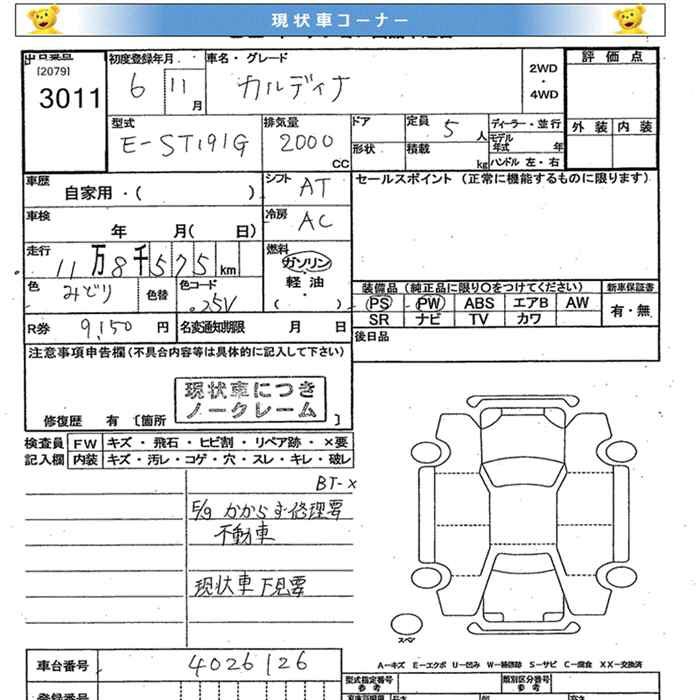 現状車コーナー
[2079]
3011
初度登録年月
6 11 月
車名・グレード
カルディナ
2WD
・
4WD
評価点
外装 内装
型式
E-ST191G
排気量
2000 CC
ドア
形状
定員 5 人
積載 kg
ディーラー・並行
モデル年式 年
ハンドル 左・右
車歴
自家用・( )
シフト AT
セールスポイント (正常に機能するものに限ります)
車検
年 月( 日)
冷房 AC
走行
11万8千575km
燃料
ガソリン
・
軽油
・
( )
色 みどり
色替
色コード .25V
装備品 (純正品に限り○をつけてください)
新車保証書
PS PW ABS エアB AW
有・無
SR ナビ TV カワ
R券 9,150 円
名変通知期限 月 日
後日品
注意事項申告欄(不具合内容等は具体的に記入して下さい)
現状車につき
ノークレーム
修復歴 有 [箇所 ]
検査員 FW キズ・飛石・ヒビ割・リペア跡・×要
記入欄 内装 キズ・汚レ・コゲ・穴・スレ・キレ・破レ
BT-×
E/g かからず修理要
不動車
現状車下見要
スペア
車台番号 4026126
A−キズ E−エクボ U−凹み W−補修跡 S−サビ C−腐食 XX−交換済
型式指定番号
参考
類別区分番号
参考
登録番号